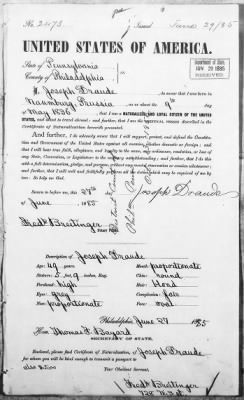 No. 2473. Issued June 29/85
UNITED STATES OF AMERICA.
State of Pennsylvania
County of Philadelphia
I, Joseph Draude do swear that I was born in
Naumburg, Prussia on or about the 9th day
of May 1836 that I am a NATURALIZED AND LOYAL CITIZEN OF THE UNITED
STATES, and about to travel abroad; and further, that I am the IDENTICAL PERSON described in the
Certificate of Naturalization herewith presented.
And further, that I do solemnly swear that I will support, protect, and defend the Constitution
and Government of the United States against all enemies, whether domestic or foreign; and
that I will bear true faith, allegiance, and loyalty to the same, any ordinance, resolution, or law of
any State, Convention, or Legislature to the contrary notwithstanding; and further, that I do this
with a full determination, pledge, and purpose, without any mental reservation or evasion whatsoever;
and further, that I will well and faithfully perform all the duties which may be required of me by
law: So help me God.
Sworn to before me, this 27th
day of June 1885
Joseph Draude
Fredk Breitinger
Description of Joseph Draude
Age: 49 years Mouth: proportionate
Stature: 5 feet 9 inches, Eng. Chin: round
Forehead: high Hair: blond
Eyes: grey Complexion: fair
Nose: proportionate Face: oval
Philadelphia June 27 1885
Hon. Thomas F. Bayard
SECRETARY OF STATE.
Enclosed, please find Certificate of Naturalization, of Joseph Draude
for whom you will be kind enough to transmit a passport to
Your Obedient Servant,
Fredk Breitinger